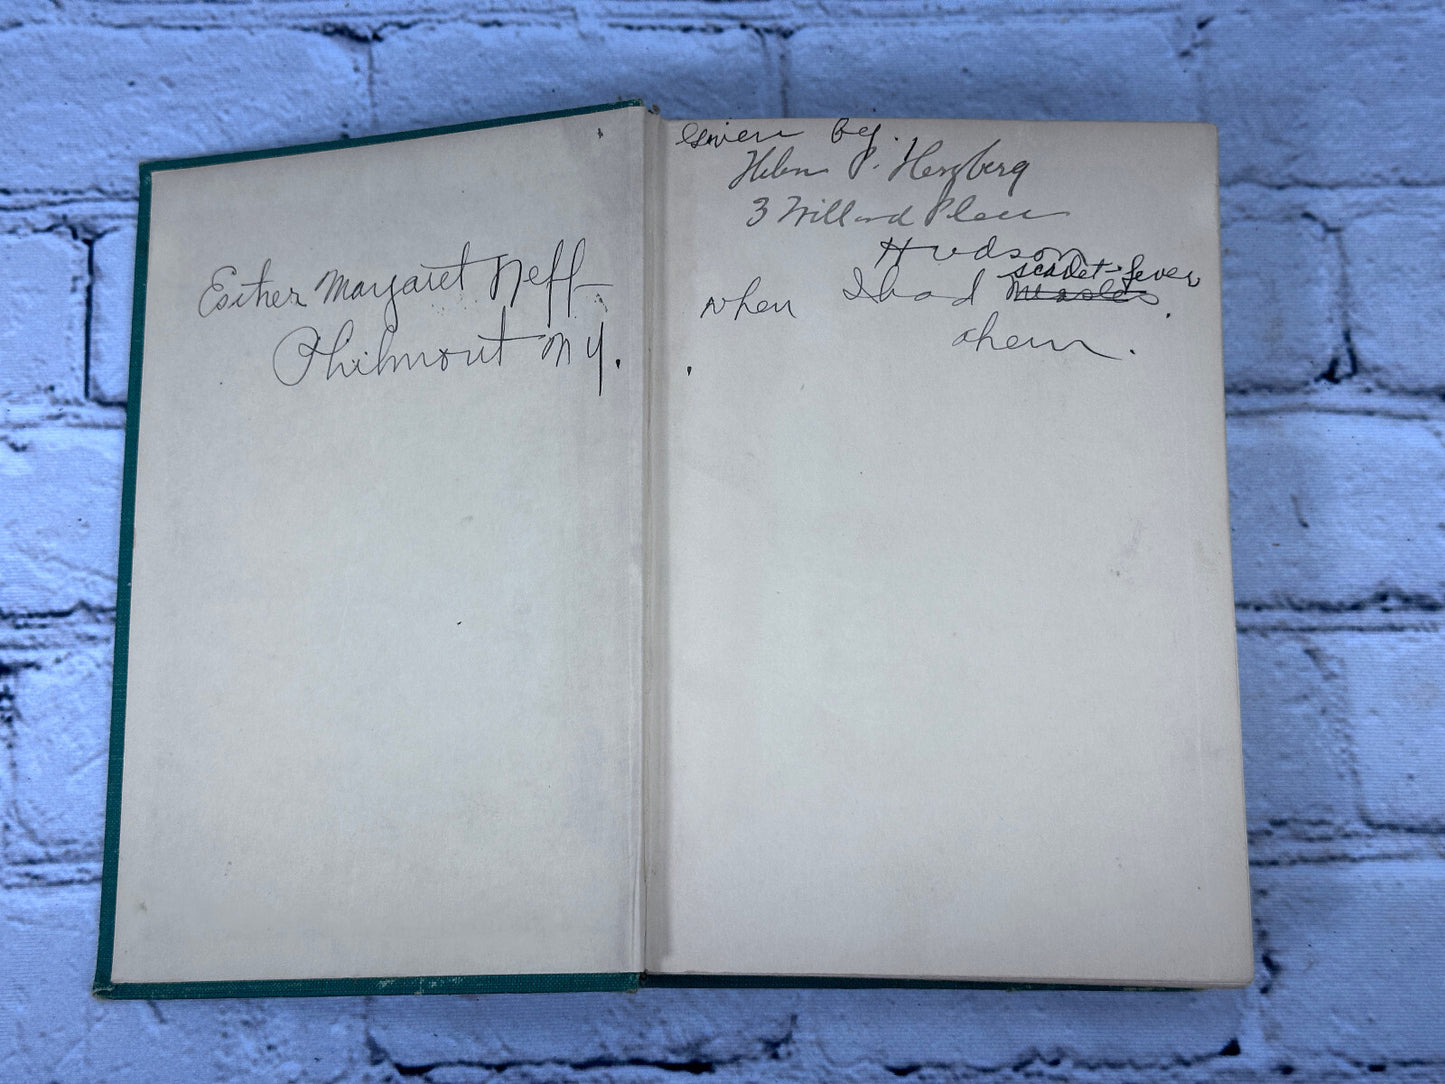 Esther Margaret Neff
Philmont N Y.
Given by.
Helen P. Herzberg
3 Willard Place
Hudson
scarlet-fever
when I had measles.